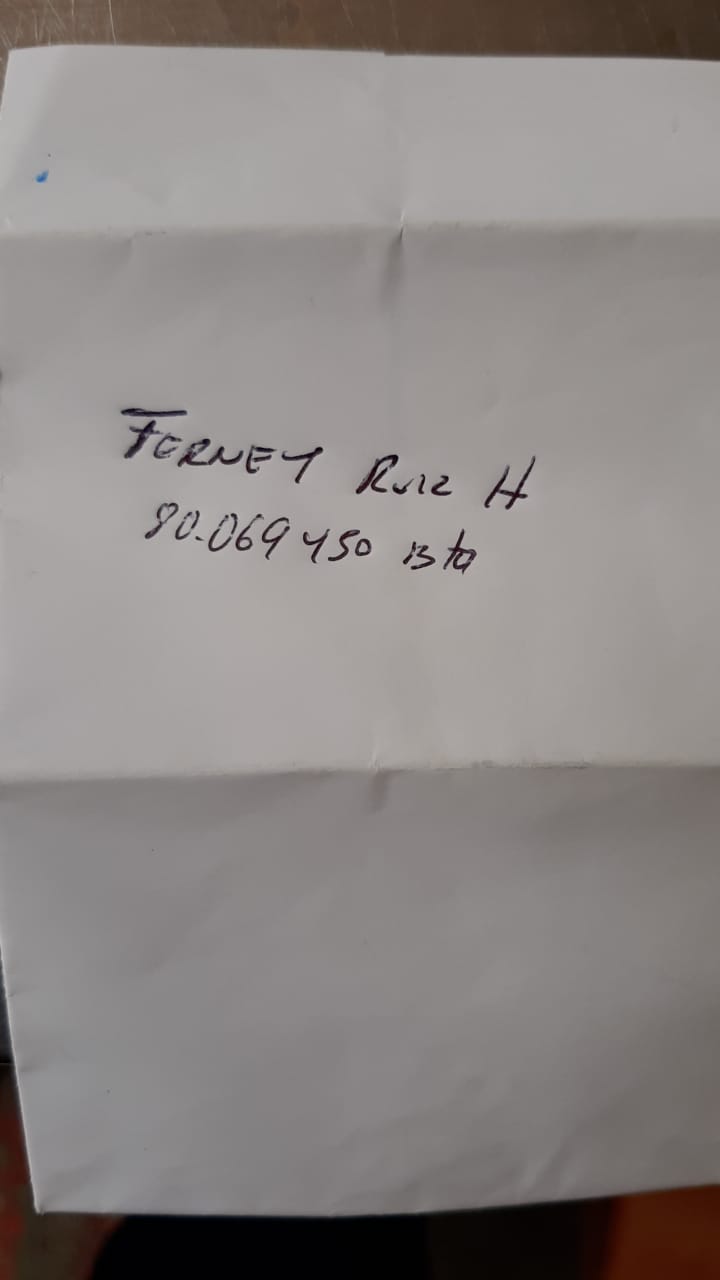 FERNEY RUIZ H
80.069450 Bta